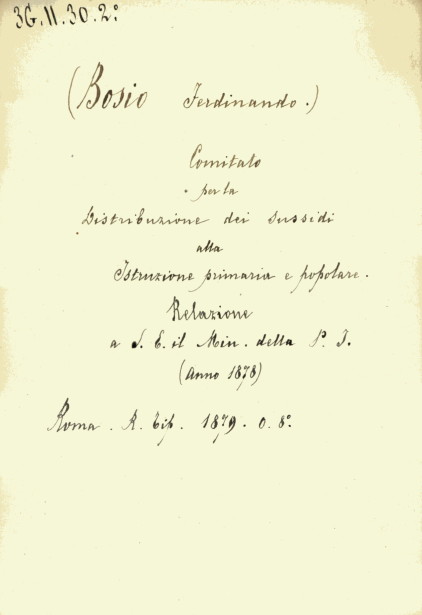 3G.11.30.2º
(Bosio Ferdinando.)
Comitato
per la
Distribuzione dei sussidi
alla
Istruzione primaria e popolare.
Relazione
a S. E. il Min. della P. I.
(Anno 1878)
Roma. R. Tip. 1879. 0. 8º.